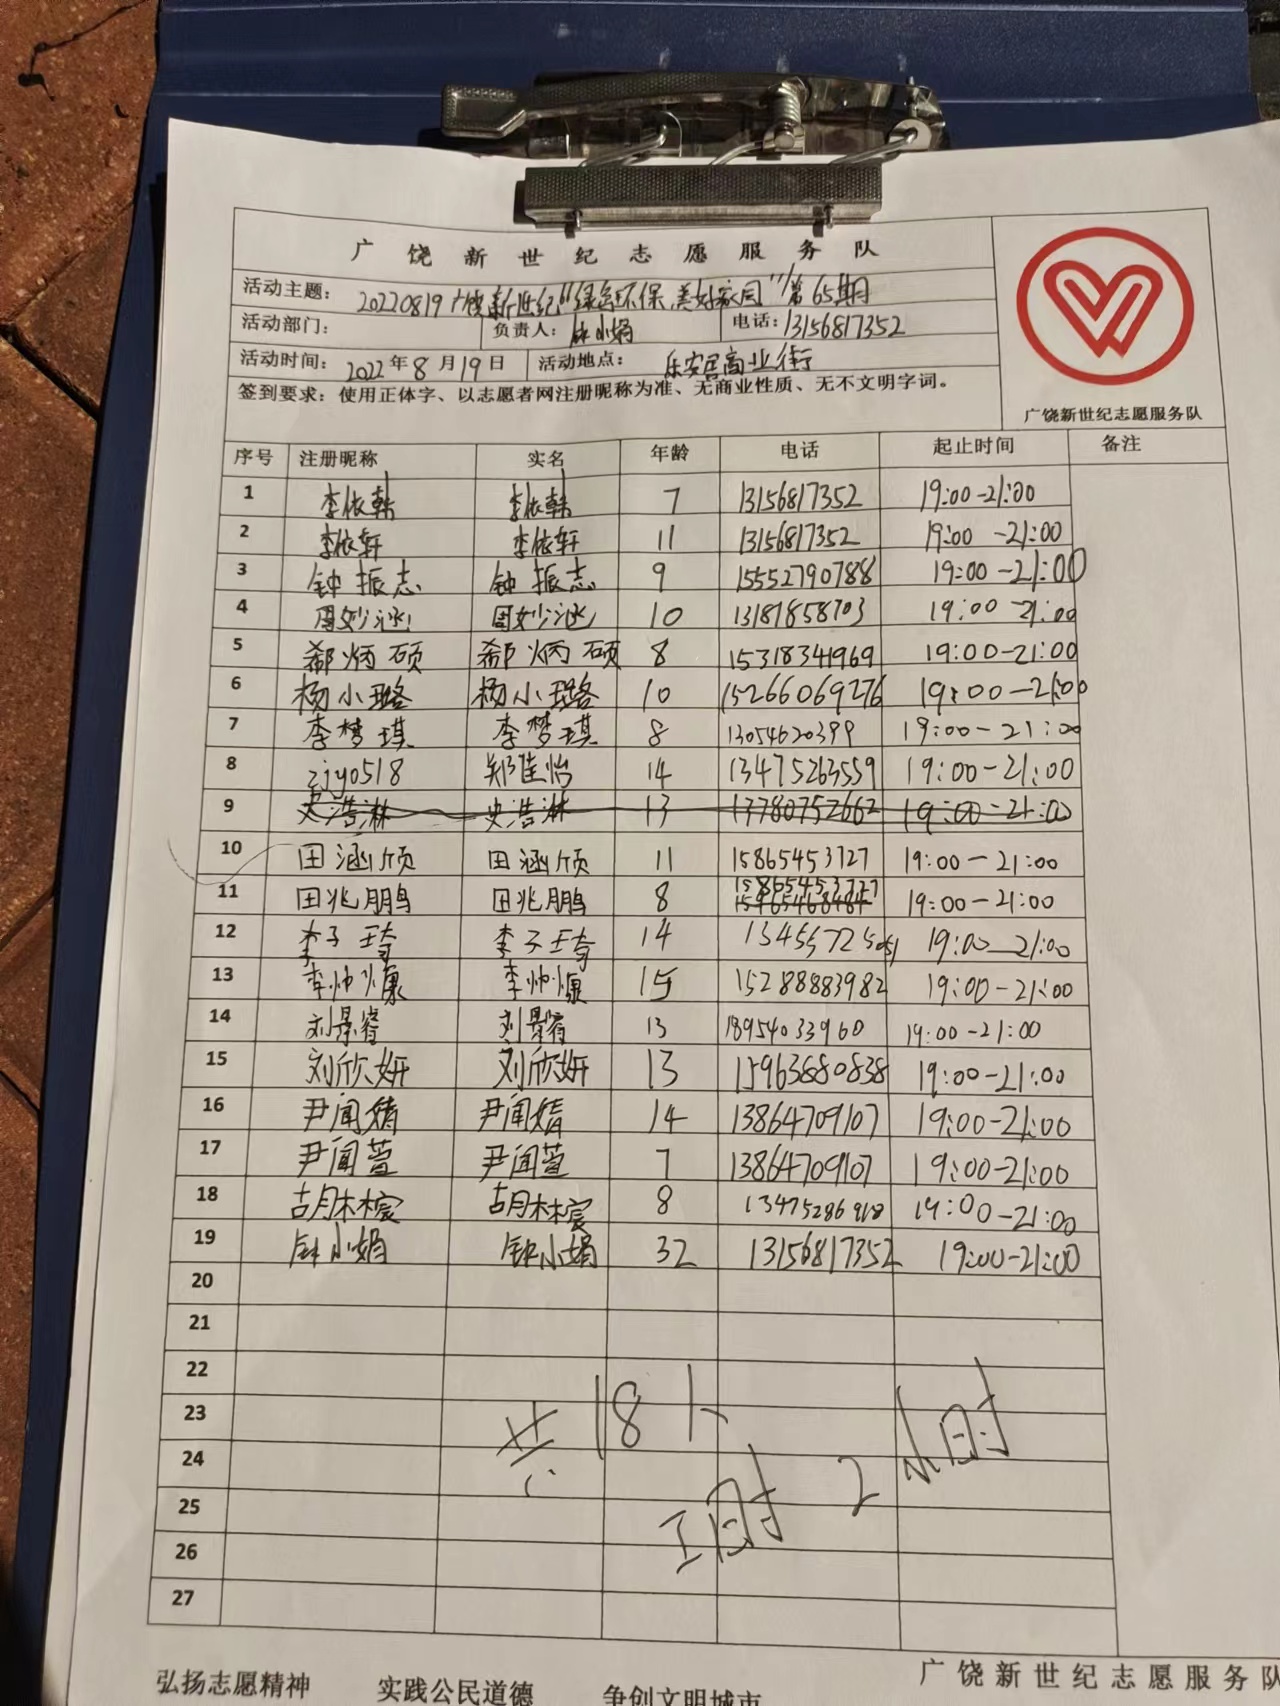 广饶新世纪志愿服务队
活动主题: 20220819广饶新世纪"绿色环保,美好家园"第65期
活动部门: 负责人: 钟小娟 电话: 13156817352
活动时间: 2022年8月19日 活动地点: 乐安居商业街
签到要求: 使用正体字、以志愿者网注册昵称为准、无商业性质、无不文明字词。
广饶新世纪志愿服务队
序号 注册昵称 实名 年龄 电话 起止时间 备注
1 李依韩 李依韩 7 13156817352 19:00-21:00
2 李依轩 李依轩 11 13156817352 19:00-21:00
3 钟振志 钟振志 9 15552790788 19:00-21:00
4 周妙涵 周妙涵 10 13181858703 19:00-21:00
5 郗炳硕 郗炳硕 8 15318341969 19:00-21:00
6 杨小璐 杨小璐 10 15266069276 19:00-21:00
7 李梦琪 李梦琪 8 13054620399 19:00-21:00
8 zjy0518 郑佳怡 14 13475263559 19:00-21:00
9 史浩淋 史浩淋 13 13780752662 19:00-21:00
10 田涵颀 田涵颀 11 15865453727 19:00-21:00
11 田兆鹏 田兆鹏 8 15865453727 19:00-21:00
12 李子琦 李子琦 14 13455725051 19:00-21:00
13 李帅慷 李帅慷 15 15288883982 19:00-21:00
14 刘景睿 刘景睿 13 18954033960 19:00-21:00
15 刘欣妍 刘欣妍 13 15963880838 19:00-21:00
16 尹闻婧 尹闻婧 14 13864709107 19:00-21:00
17 尹闻萱 尹闻萱 7 13864709107 19:00-21:00
18 胡林宸 胡林宸 8 13475286918 19:00-21:00
19 钟小娟 钟小娟 32 13156817352 19:00-21:00
20
21
22
23
24
25
26
27
共18人
工时2小时
弘扬志愿精神 实践公民道德 争创文明城市
广饶新世纪志愿服务队